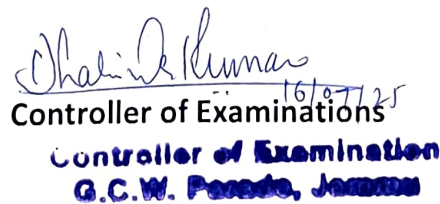 Kumar
16/07/25
Controller of Examinations
Controller of Examination
G.C.W. Parade, Jammu